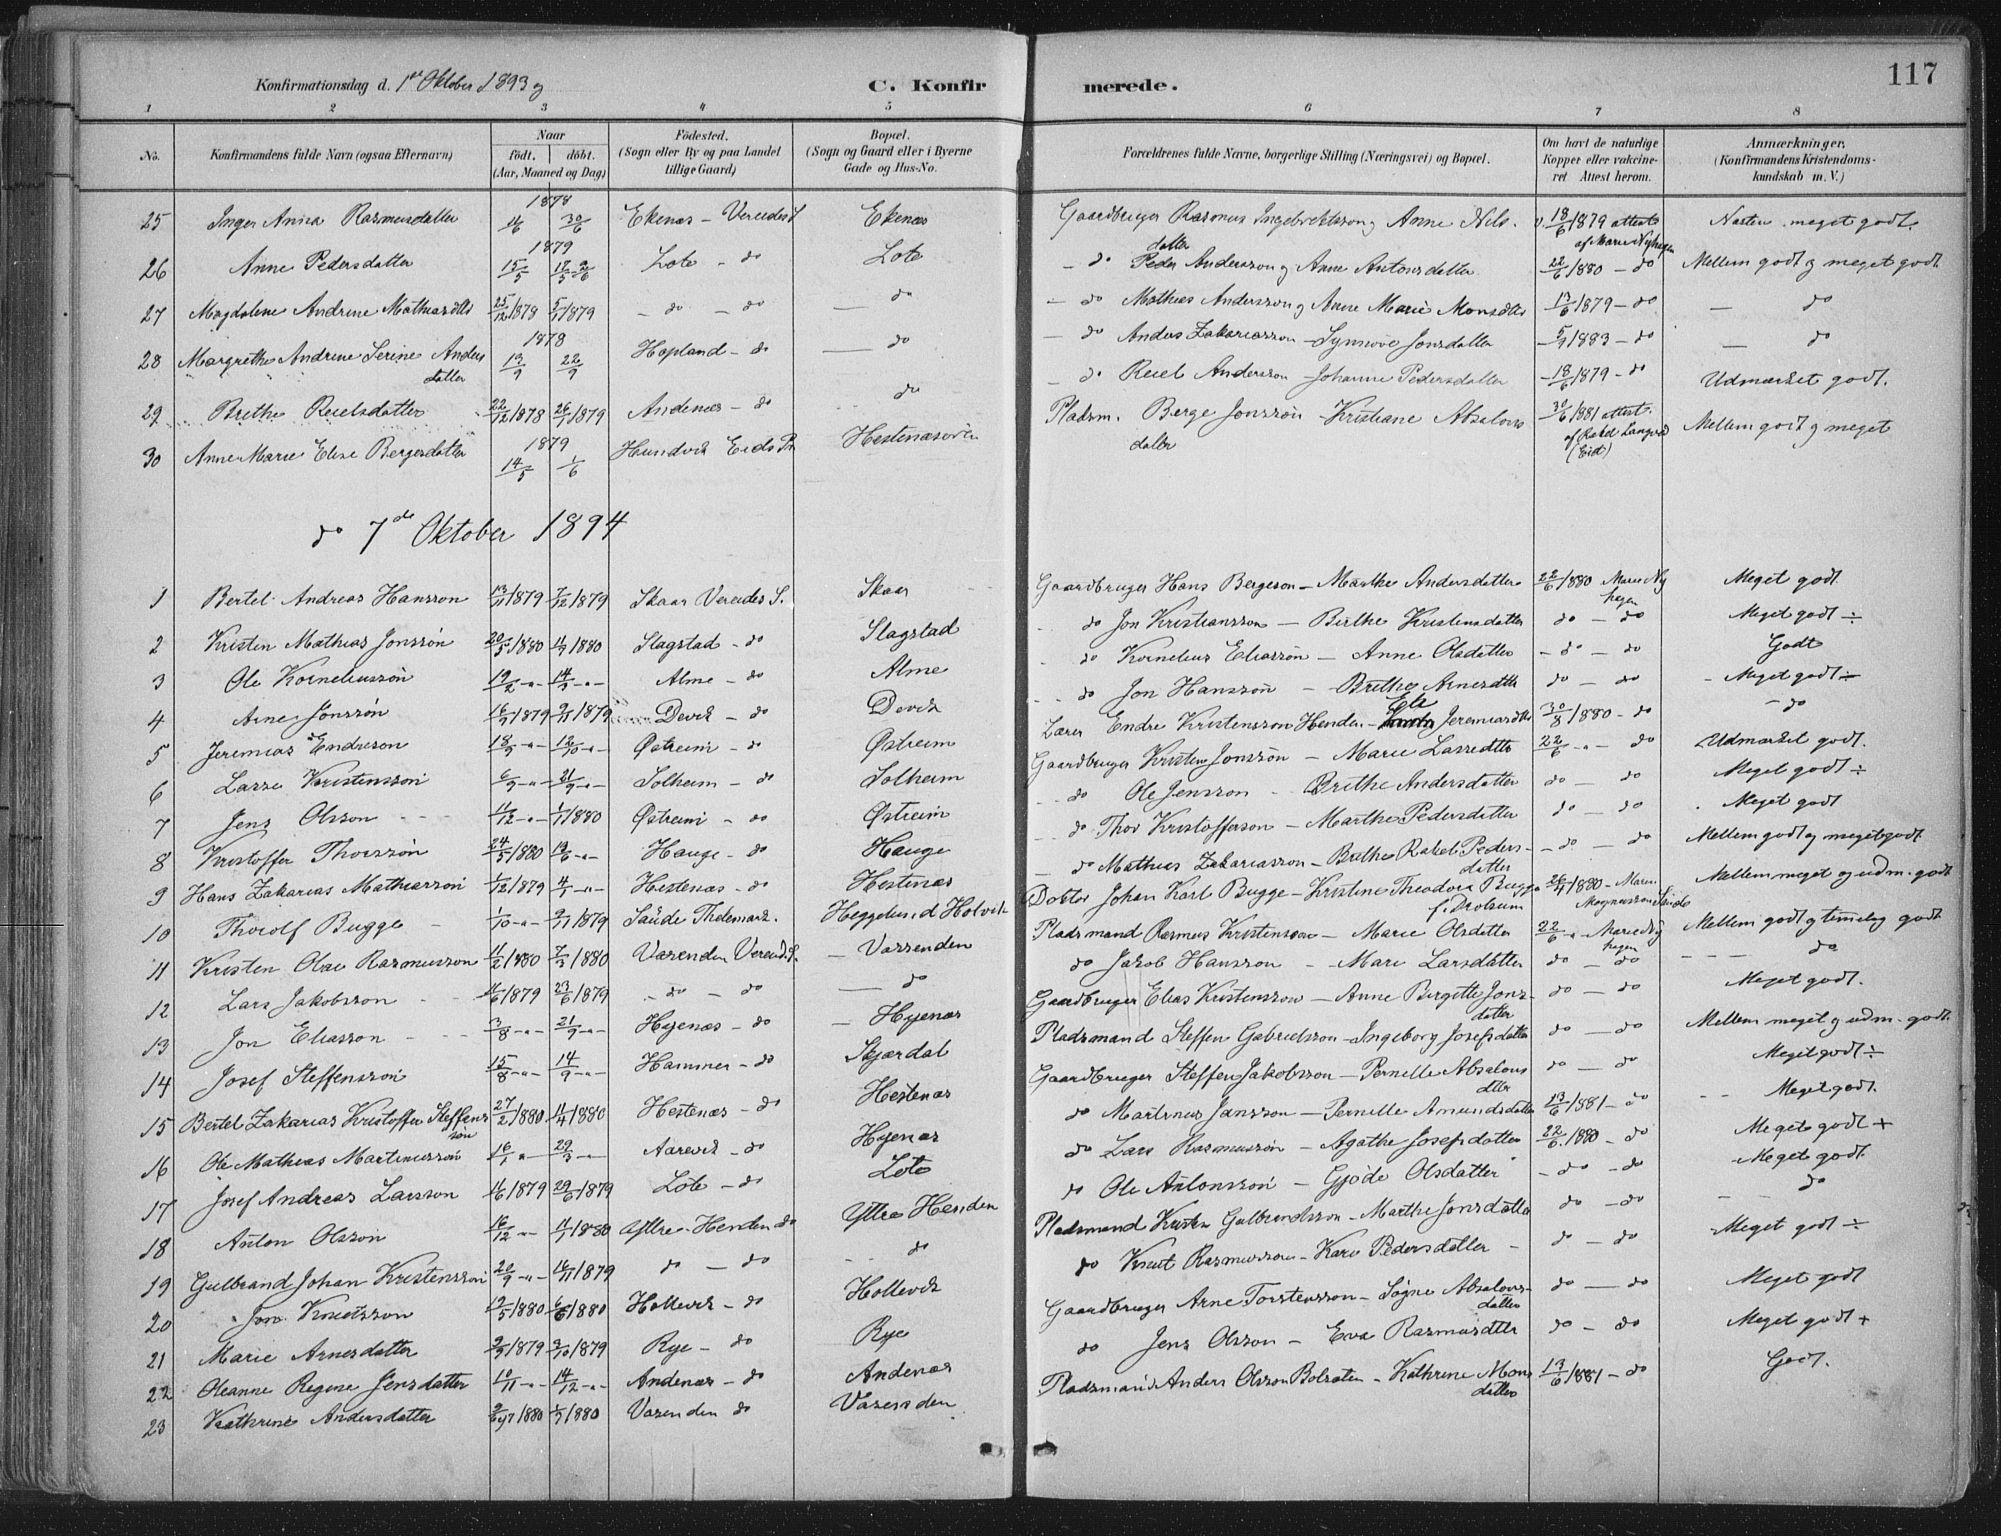 117
Konfirmationsdag d. 1ste Oktober 1893 og
C. Konfirmerede.
1 2 3 4 5 6 7 8
No. Konfirmandens fulde Navn (ogsaa Efternavn) Naar født. døbt. (Aar, Maaned og Dag) Fødested. (Sogn eller By og paa Landet tillige Gaard) Bopæl. (Sogn og Gaard eller i Byerne Gade og Hus-No. Forældrenes fulde Navne, borgerlige Stilling (Næringsvei) og Bopæl. Om havt de naturlige Kopper eller vaccineret Attest herom. Anmærkninger, (Konfirmandens Kristendomskundskab m. V.)
25 Inger Anna Rasmusdatter 1878 30/6 Ekenæs – Vereides S Ekenæs Gaardbruger Rasmus Ingebrektsson og Anne Nilsdatter v. 18/6 1879 attest af Marie Nyhagen Næsten meget godt.
26 Anne Pedersdatter 1879 15/5 Lote – do Lote – do Peder Andersson og Anne Antonsdatter 22/6 1880 – do Mellem godt og meget godt
27 Magdalene Andrine Mathiasdtr 25/12 1878 5/1 1879 – do – do do – do Mathias Andersson og Anne Marie Monsdtr 13/6 1879 – do – do
28 Margrethe Andrine Serine Andersdatter 1878 13/9 22/9 Hopland – do – do – do Anders Zakariasson – Synnøve Jonsdatter 1883 – do – do
29 Brithe Reielsdatter 22/12 1878 26/1 1879 Andenæs – do do – do Reiel Andersson – Johanne Pedersdatter 18/6 1879 – do Udmærket godt.
30 Anne Marie Elise Bergesdatter 1879 14/5 1/6 Hundvik Eids Pr Hestenæsøren Pladsm. Berge Jonssøn – Kristiane Absalonsdatter 30/6 1881 attest. af Rakel Langved (Eid) Mellem godt og meget
do 7de Oktober 1894
1 Bertel Andreas Hansson 13/11 1879 7/12 1879 Skaar Vereides S. Skaar Gaardbruger Hans Bergeson – Marthe Andersdatter 22/6 1880 Marie Nyhagen Meget godt
2 Kristen Mathias Jonssøn 20/5 1880 1880 Slagstad – do Slagstad do Jon Kristiansson – Birthe Kristensdatter do – do Meget godt ÷
3 Ole Korneliussøn 19/2 –"– 14/3 –"– Alme – do Alme do Kornelius Eliassøn – Anne Olsdatter – do – do Godt
4 Arne Jonssøn 1879 1879 Devik – do Devik do Jon Hanssøn – Brithe Arnesdtr do – do Meget godt ÷
5 Jeremias Endreson 18/9 –"– 12/10 –"– Østreim – do Østreim Lærer Endre Kristensson Henden – Ele Jeremiasdtr 30/8 1880 – do – do
6 Lasse Kristenssøn 6/9 –"– 21/9 –"– Solheim – do Solheim Gaardbruger Kristen Jonssøn – Marie Lassedtr 22/6 –"– do Udmærket godt.
7 Jens Olsson 11/12 –"– 1/1 1880 Østreim – do Østreim do Ole Jensson – Brithe Andersdatter do – do Meget godt ÷
8 Kristoffer Thorssøn 24/5 1880 13/6 –"– Hauge – do Hauge do Thor Kristofferson – Marthe Pedersdatter do – do Meget godt
9 Hans Zakarias Mathiassøn 1/12 1879 4/1 –"– Hestenæs – do Hestenæs do Mathias Zakariasson – Brithe Rakel Pedersdatter – do – do Mellem godt og meget godt
10 Thorolf Bugge 1/10 –"– 9/11 1879 Saude Thelemark. Heggelund Holvik Doktor Johan Karl Bugge – Kristine Theodora Bugge f. Drolsum 26/4 1880 – Maren Magnusson Linde Mellem meget og udm. godt
11 Kristen Olai Rasmusson 11/2 1880 7/3 1880 Varenden Vereides S. – Vassenden Pladsmand Rasmus Kristensson – Marie Olsdatter 22/6 " Marie Nyhagen Mellem godt og temelig godt
12 Lars Jakobsson 11/6 1879 23/6 1879 – do – do – do do Jakob Hansson – Mari Larsdatter do – do – do
13 Jon Eliasson 3/8 –"– 21/9 –"– Hyenæs – do – Hyenæs Gaardbruger Elias Kristensson – Anne Birgitte Jonsdatter do – do Meget godt.
14 Josef Steffenssøn 15/8 –"– 14/9 –"– Hammer – do Skjærdal Pladsmand Steffen Gabrielsson – Ingeborg Josefsdatter do – do Mellem meget og udm. godt.
15 Bertel Zakarias Kristoffer Steffenssøn 27/2 1880 11/4 1880 Hestenæs – do Hestenæs Gaardbruger Steffen Jakobsson – Pernille Absalonsdtter do – do Meget godt ÷
16 Ole Mathias Martinussøn 16/1 –"– 29/3 –"– Aarevik – do Hyenæs do Martinus Jansson – Pernille Amundsdatter 13/6 1881 – do – Meget godt.
17 Josef Andreas Larsson 11/6 1879 29/6 1879 Lote – do Lote do Lars Rasmussøn – Agathe Josefsdatter 22/6 1880 – do Meget godt +
18 Anton Olsson 16/12 –"– 11/1 1880 Yttre Henden do Yttre Henden do Ole Antonssøn – Gjøde Olsdatter – do – do Meget godt
19 Gulbrand Johan Kristenssøn 20/9 –"– 16/11 1879 do – do – do Pladsmand Kristen Gulbrandsson – Marthe Jonsdatter do – do – do
20 Jon Knutsson 1880 1880 Hollevik – do Hollevik do Knut Rasmusson – Kari Pedersdatter – do – do Meget godt ÷
21 Marie Arnesdatter 1879 1879 Rye – do Rye Gaardbruger Arne Torstensson – Søgne Absalonsdatter do – do Meget godt
22 Oleanne Regine Jensdatter 10/11 –"– 14/12 –"– Andenæs – do Andenæs do Jens Olsson – Eva Rasmusdtter do – do Meget godt +
23 Kathrine Andersdatter 1880 1880 Varenden do Varenden Pladsmand Anders Olsson Bolsaten – Kathrine Monsdatter 13/6 1881 – do Godt.